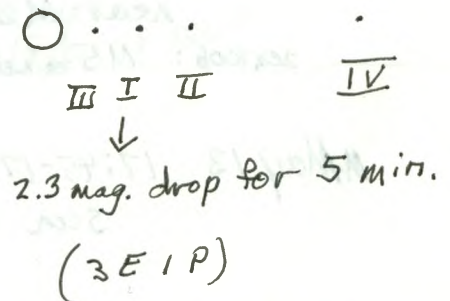 III I II IV
2.3 mag. drop for 5 min.
(3 E 1 P)